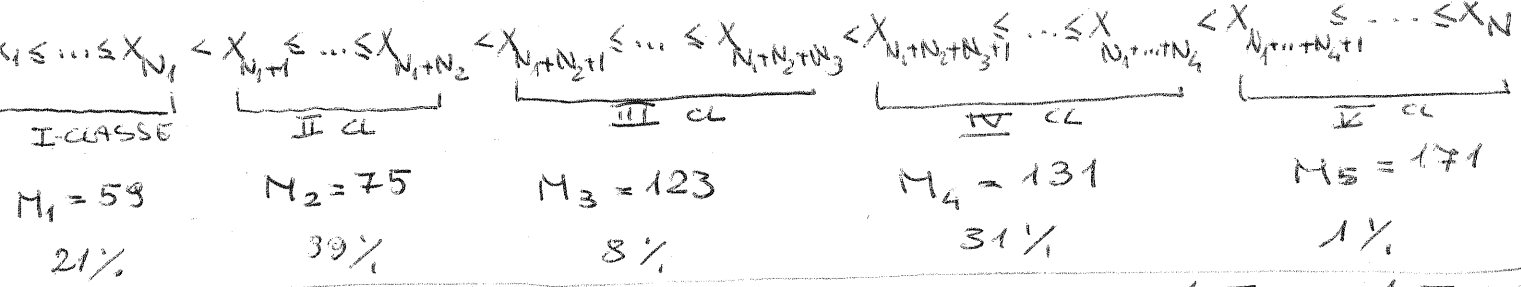 X₁ ≤ ... ≤ X_{N₁} < X_{N₁+1} ≤ ... ≤ X_{N₁+N₂} < X_{N₁+N₂+1} ≤ ... ≤ X_{N₁+N₂+N₃} < X_{N₁+N₂+N₃+1} ≤ ... ≤ X_{N₁+...+N₄} < X_{N₁+...+N₄+1} ≤ .... ≤ X_N
I-CLASSE II CL III CL IV CL V CL
M₁ = 59 M₂ = 75 M₃ = 123 M₄ = 131 M5 = 171
21% 39% 8% 31% 1%